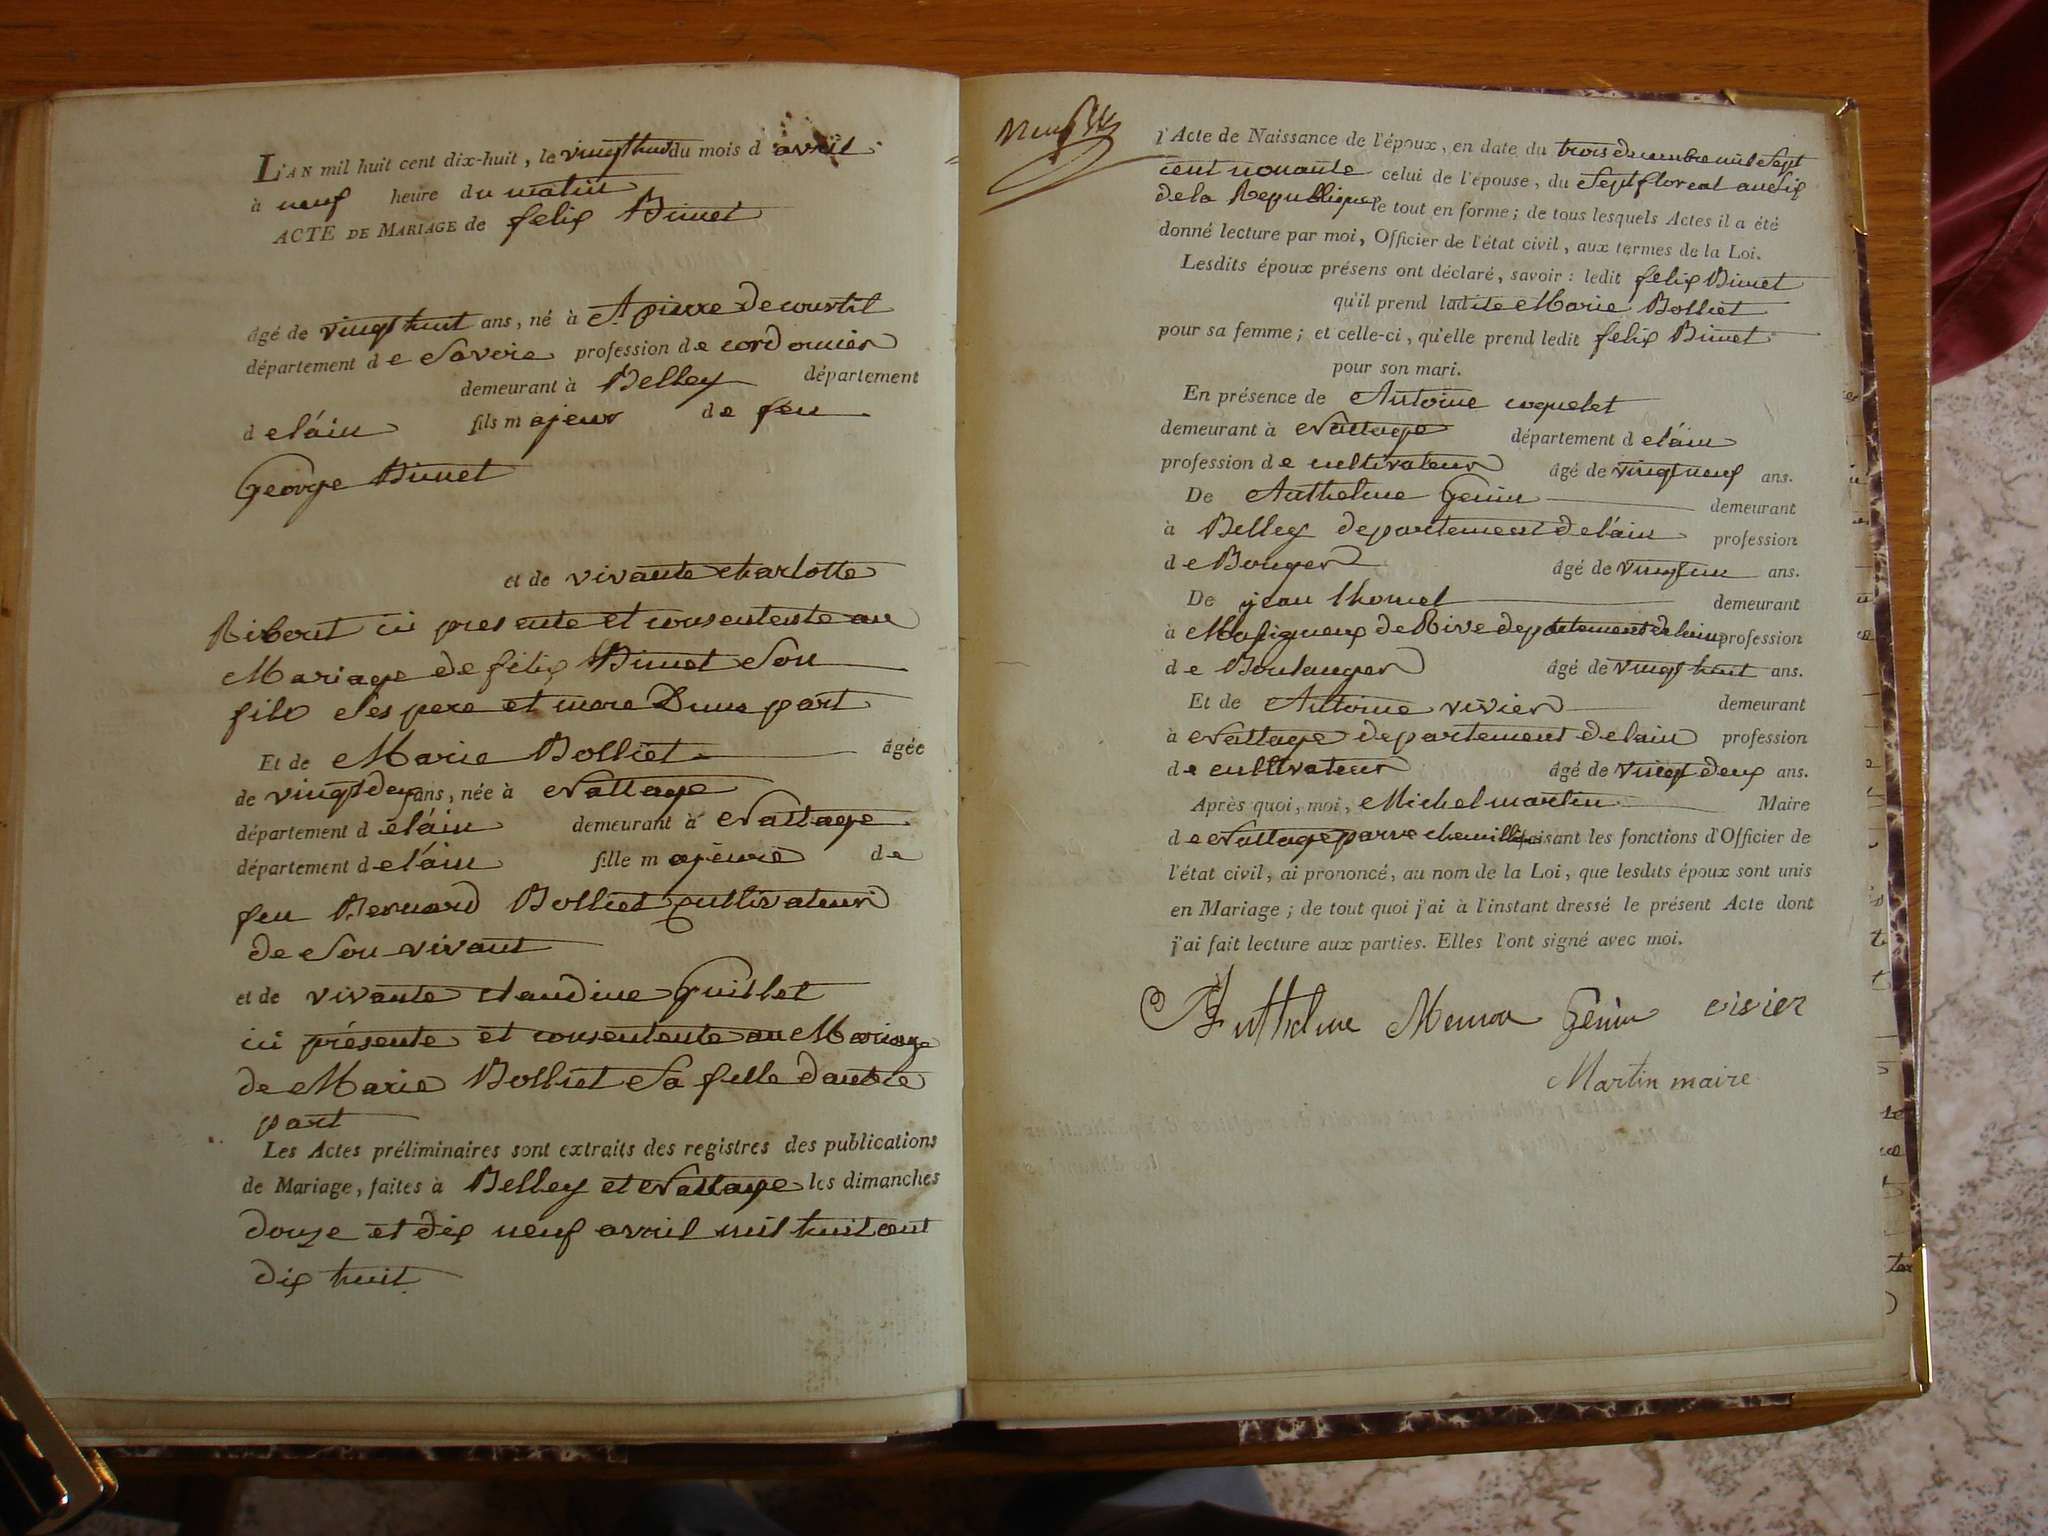 L'AN mil huit cent dix-huit, le vingt huit du mois d avril
à neuf heure du matin
ACTE DE MARIAGE de felix Bimet
âgé de vingt huit ans, né à St pierre de courtil
département de Savoie profession de cordonnier
demeurant à Belley département
de láin fils majeur de feu
George Bimet
et de vivante charlotte
Ribout ici presente et consentente au
Mariage de felix Bimet Son
fils Ses pere et mere Dune part
Et de Marie Bolliet âgée
de vingt deux ans, née à Nattage
département de láin demeurant à Nattage
département de láin fille majeure de
feu Bernard Bolliet cultivateur
de Son vivant
et de vivante claudine Guillet
ici présente et consentente au Mariage
de Marie Bolliet Sa fille dautre
part
Les Actes préliminaires sont extraits des registres des publications
de Mariage, faites à Belley et Nattage les dimanches
douze et dix neuf avril mil huit cent
dix huit
l'Acte de Naissance de l'époux, en date du trois decembre mil Sept
cent nonante celui de l'épouse, du Sept floreal an Six
de la Republique le tout en forme; de tous lesquels Actes il a été
donné lecture par moi, Officier de l'état civil, aux termes de la Loi.
Lesdits époux présens ont déclaré, savoir: ledit felix Bimet
qu'il prend ladite Marie Bolliet
pour sa femme; et celle-ci, qu'elle prend ledit felix Bimet
pour son mari.
En présence de Antoine coquelet
demeurant à Nattage département de láin
profession de cultivateur âgé de vingt neuf ans.
De Anthelme Genin demeurant
à Belley departement de láin profession
de âgé de vingt un ans.
De jean thomel demeurant
à Massigneux de Rive departement de lain profession
de Boulanger âgé de vingt huit ans.
Et de Antoine vivier demeurant
à Nattage departement de lain profession
de cultivateur âgé de vingt deux ans.
Après quoi, moi, Michel martin Maire
de Nattage parve faisant les fonctions d'Officier de
l'état civil, ai prononcé, au nom de la Loi, que lesdits époux sont unis
en Mariage; de tout quoi j'ai à l'instant dressé le présent Acte dont
j'ai fait lecture aux parties. Elles l'ont signé avec moi.
Anthelme Genin vivier
Martin maire